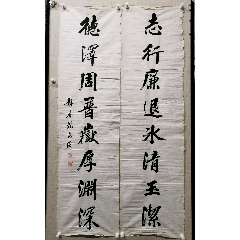 志行廉退冰清玉潔
德澤周普嶽厚淵深